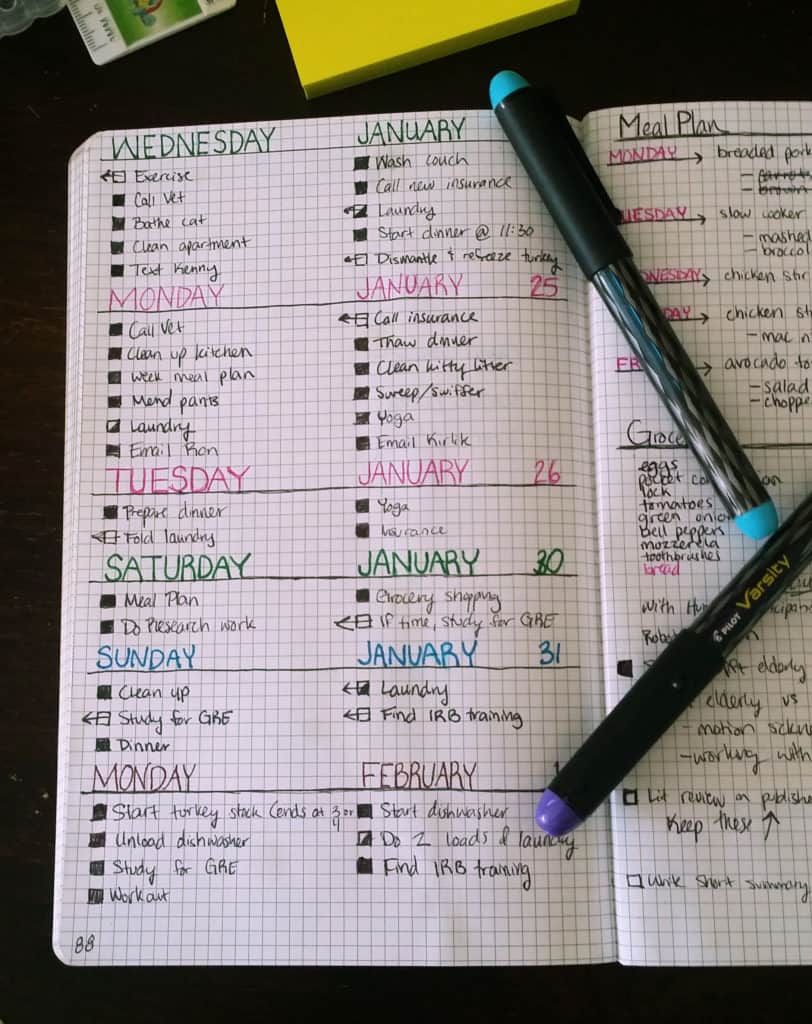 WEDNESDAY JANUARY
Exercise
Call Vet
Bathe cat
Clean apartment
Text Kenny
Wash couch
Call new insurance
Laundry
Start dinner @ 11:30
Dismantle & refreeze turkey
MONDAY JANUARY 25
Call Vet
Clean up kitchen
Week meal plan
Mend pants
Laundry
Email Ron
Call insurance
Thaw dinner
Clean kitty litter
Sweep/swiffer
Yoga
Email Kirlik
TUESDAY JANUARY 26
Prepare dinner
Fold laundry
Yoga
Insurance
SATURDAY JANUARY 30
Meal Plan
Do Research work
Grocery shopping
If time, study for GRE
SUNDAY JANUARY 31
Clean up
Study for GRE
Dinner
Laundry
Find IRB training
MONDAY FEBRUARY 1
Start turkey stock (ends at 3 or 4
Unload dishwasher
Study for GRE
Workout
Start dishwasher
Do 2 loads of laundry
Find IRB training
88
Meal Plan
MONDAY → breaded pork
- carrots
- brown
UESDAY → slow cooker
- mashed
- broccol
NESDAY → chicken str
DAY → chicken st
- mac n
FR → avocado to
- salad
- choppe
Groce
eggs
pocket
lock
tomatoes
green onion
bell peppers
mozzerela
toothbrushes
bread
With
Robo
elderly
elderly vs
- motion sickn
- working with
Lit review on publishe
Keep these ↑
Write short summary
PILOT Varsity